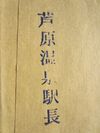 芦原温泉駅長